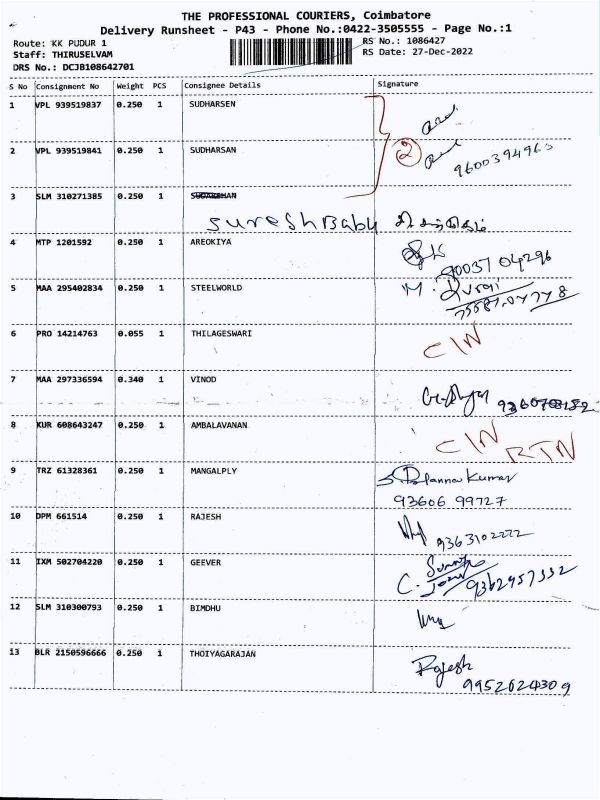 THE PROFESSIONAL COURIERS, Coimbatore
Delivery Runsheet - P43 - Phone No.:0422-3505555 - Page No.:1
Route: KK PUDUR 1 RS No.: 1086427
Staff: THIRUSELVAM RS Date: 27-Dec-2022
DRS No.: DCJB108642701
S No Consignment No Weight PCS Consignee Details Signature
1 VPL 939519837 0.250 1 SUDHARSEN
2 VPL 939519841 0.250 1 SUDHARSAN 2 9600394963
3 SLM 310271385 0.250 1
Suresh Baby
4 MTP 1201592 0.250 1 AREOKIYA
90037 04296
5 MAA 295402834 0.250 1 STEELWORLD M.
6 PRO 14214763 0.055 1 THILAGESWARI C/N
7 MAA 297336594 0.340 1 VINOD
8 KUR 608643247 0.250 1 AMBALAVANAN C/N RTN
9 TRZ 61328361 0.250 1 MANGALPLY Kumar
93606 99727
10 DPM 661514 0.250 1 RAJESH 9363102222
11 IXM 502704220 0.250 1 GEEVER
12 SLM 310300793 0.250 1 BIMDHU
13 BLR 2150596666 0.250 1 THOIYAGARAJAN Rajesh
9952624309